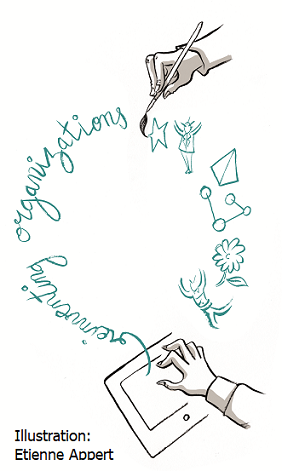 reinventing
organizations
Illustration:
Etienne Appert